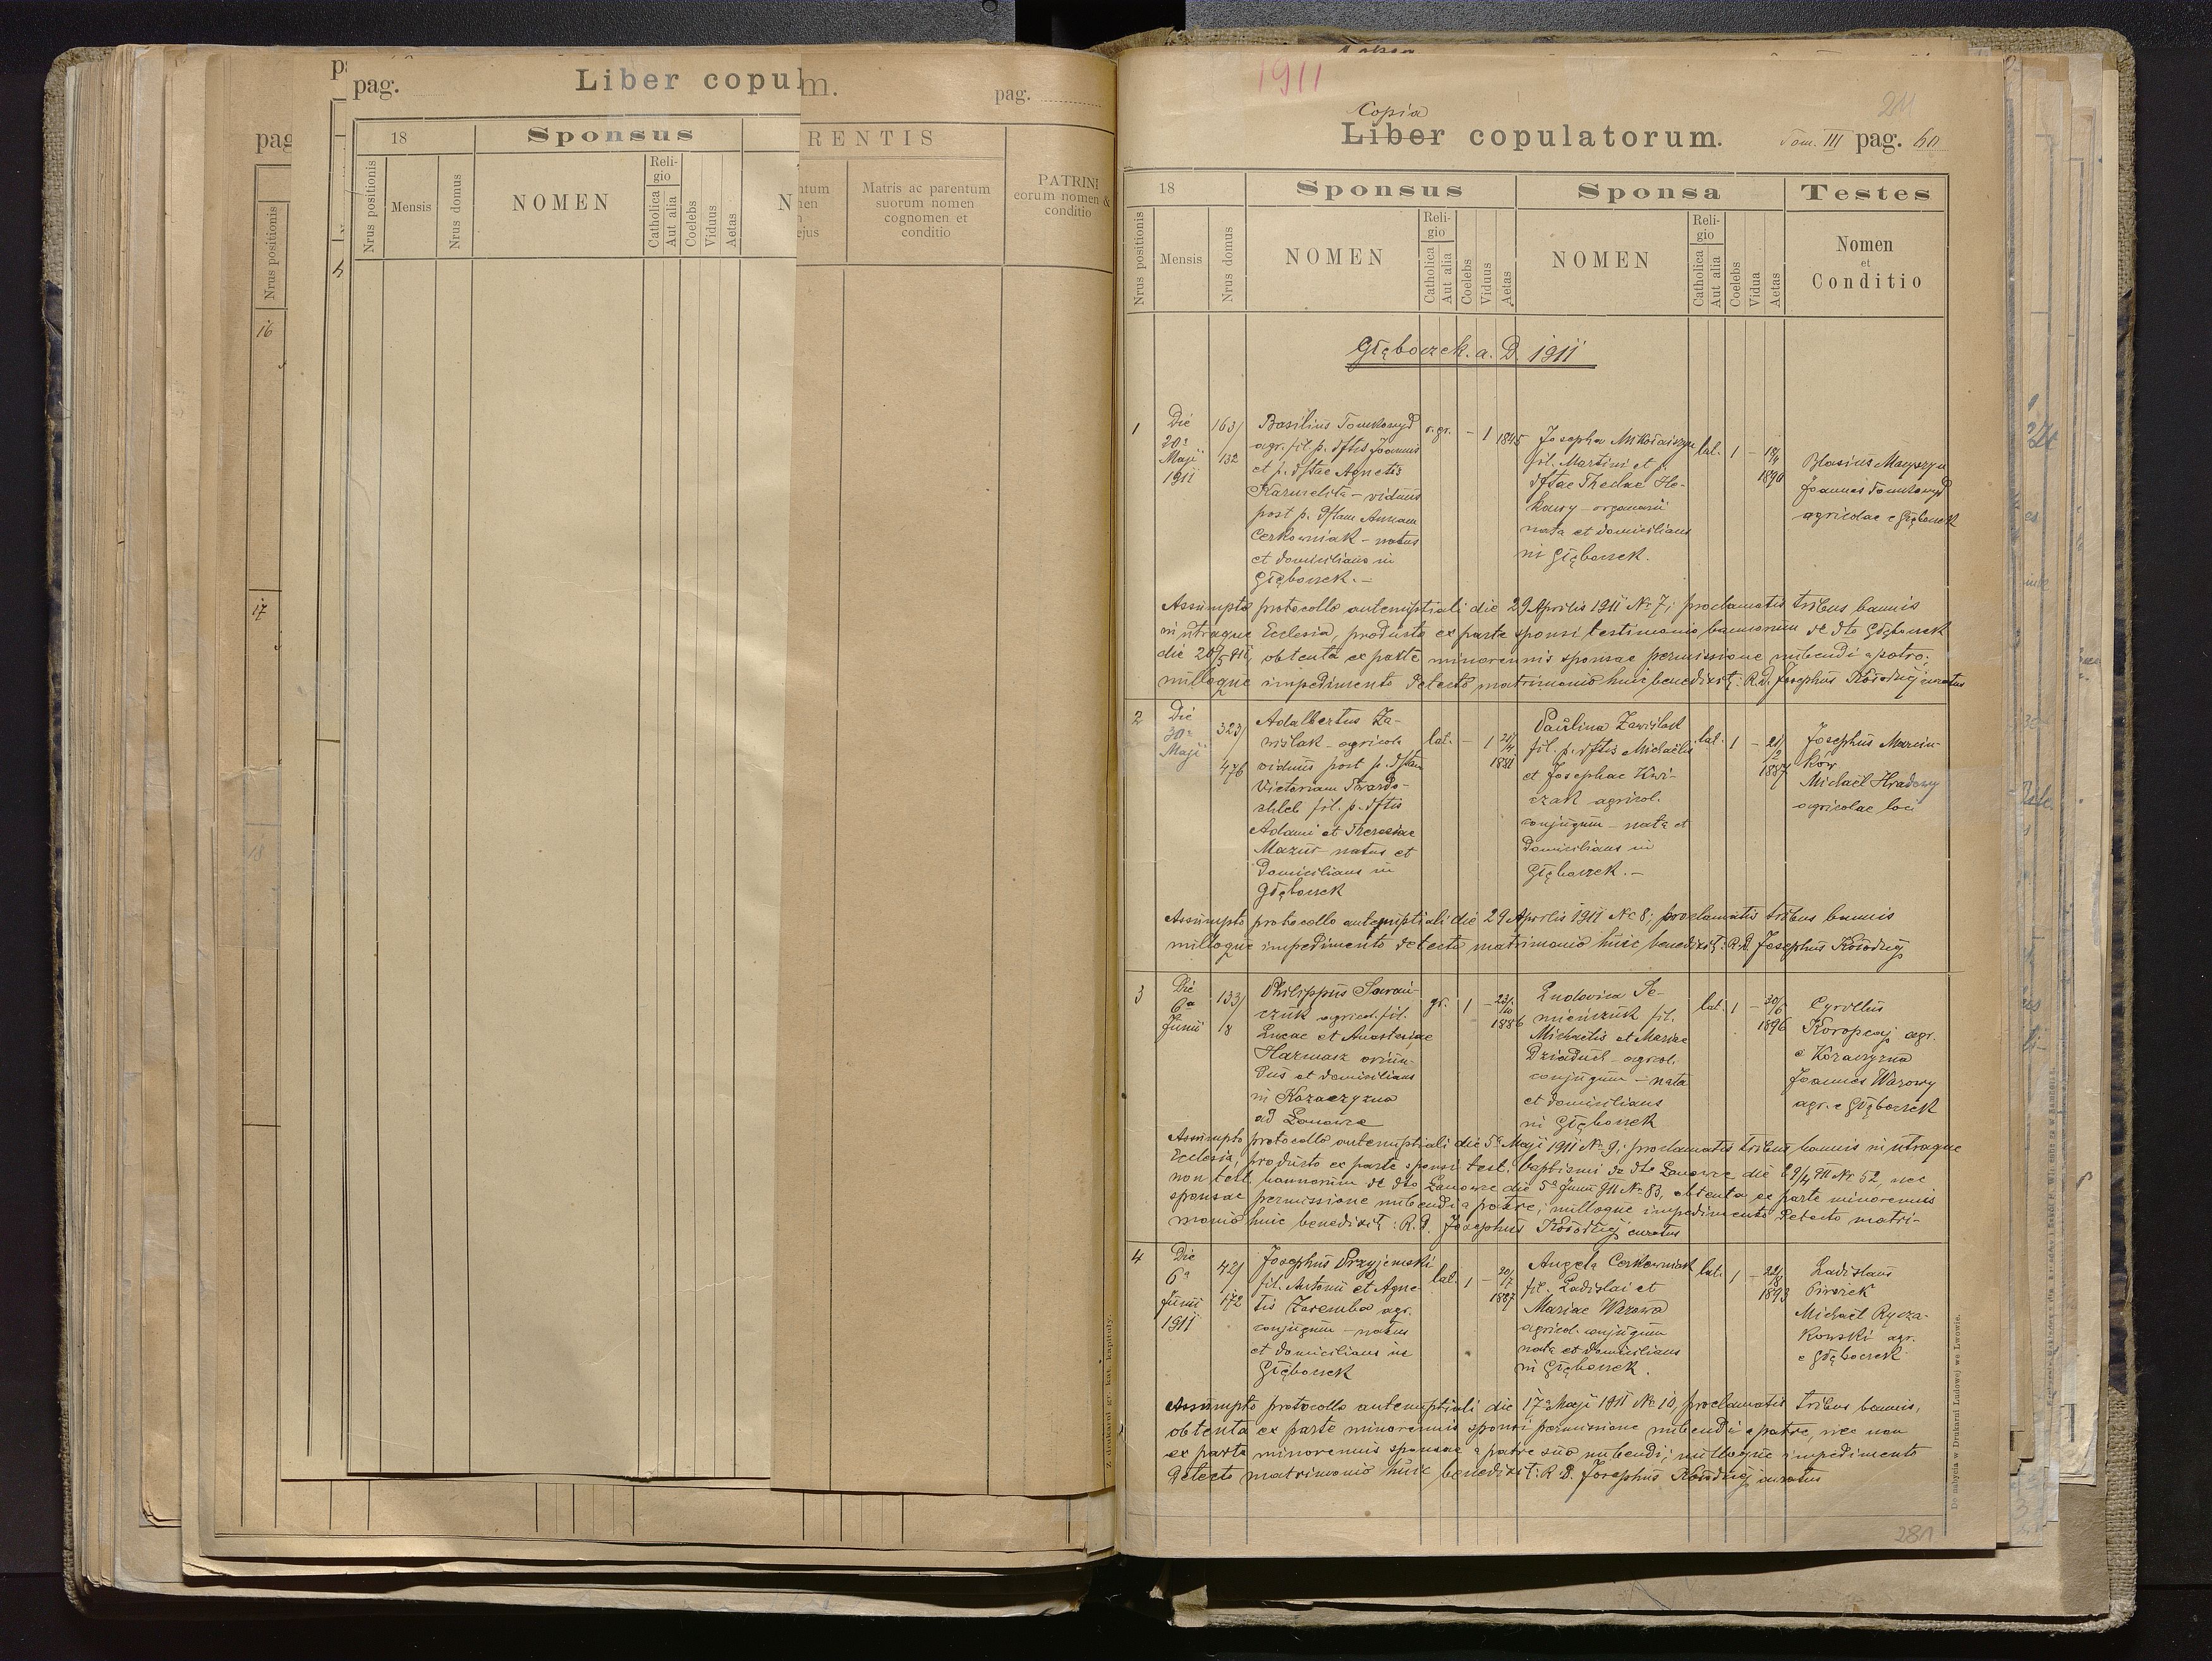 pag.
Liber copul
m.
pag.
18
Sponsus
RENTIS
Nrus positionis
Mensis
Nrus domus
NOMEN
Reli-
gio
Catholica
Aut alia
Coelebs
Viduus
Aetas
N
Matris ac parentum
suorum nomen
cognomen et
conditio
PATRINI
eorum nomen &
conditio
pag
Nrus positionis
16
17
18
1911
Copia
211
Liber copulatorum.
Tom. III pag. 60
18
Sponsus
Sponsa
Testes
Nrus positionis
Mensis
Nrus domus
NOMEN
Reli-
gio
Catholica
Aut alia
Coelebs
Viduus
Aetas
NOMEN
Reli-
gio
Catholica
Aut alia
Coelebs
Vidua
Aetas
Nomen
et
Conditio
Głęboczek. a. D. 1911
1
Die
20a
Maji
1911
163/
132
Basilius Tomkowyd
agr. fil. p. dftis Joannis
et p. dftae Agnetis
Karmelita - viduus
post p. dftam Annam
Cerkowniak - natus
et domicilians in
Głęboczek. -
r. gr. - 1 1845
Josepha Mikołaiszyn
fil. Martini et p.
dftae Theclae
organarii
nata et domicilians
in Głęboczek.
lat. 1 -
1890
Blasius
Joannes Tomkowyd
agricolae e Głęboczek
Assumpto protocollo antenuptiali die 29 Aprilis 1911 Nr 7; proclamatis tribus bannis
in utraque Ecclesia, producto ex parte sponsi testimonio bannorum de dto Głęboczek
die 20/5 911, obtenta ex parte minorennis sponsae permissione nubendi a patre;
nulloque impedimento detecto matrimonio huic benedixit: R. D. Josephus Kołodziej curatus
2
Die
30a
Maji
323/
476
Adalbertus Za-
wiślak - agricola
viduus post p. dftam
Victoriam Twardo-
chleb fil. p. dftis
Adami et Theresiae
Mazur natus et
domicilians in
Głęboczek
lat. - 1 21/4
1881
Paulina Zawiślak
fil. p. dftis Michaelis
et Josephae Kwi-
czak agricol.
conjugum - nata et
domicilians in
Głęboczek. -
lat. 1 - 21/2
1887
Josephus Marcin-
ków
Michael Hradowy
agricolae loci
Assumpto protocollo antenuptiali die 29 Aprilis 1911 Nr 8; proclamatis tribus bannis
nulloque impedimento detecto matrimonio huic benedixit: R. D. Josephus Kołodziej
3
Die
6a
Junii
133/
8
Philippus Sawrań-
czuk agricol. fil.
Lucae et Anastasiae
Harmasz oriun-
dus et domicilians
in Kozaczyzna
ad Łanowce
gr. 1 - 23/10
1886
Ludovica Se-
mieńczuk fil.
Michaelis et Mariae
Dziaduch - agricol.
conjugum - nata
et domicilians
in Głęboczek
lat. 1 - 30/6
1896
Cyrillus
Koropcaj agr.
e Kozaczyzna
Joannes Warowy
agr. e Głęboczek
Assumpto protocollo antenuptiali die 5a Maji 1911 Nr 9; proclamatis tribus bannis in utraque
Ecclesia, producto ex parte sponsi test. baptismi de dto Łanowce die 29/4 911 Nr 52, nec
non test. bannorum de dto Łanowce die 5a Junii 911 Nr 83, obtenta ex parte minorennis
sponsae permissione nubendi a patre; nulloque impedimento detecto matri-
monio huic benedixit: R. D. Josephus Kołodziej curatus
4
Die
6a
Junii
1911
42/
172
Josephus Przyjemski
fil. Antonii et Agne-
tis Zaremba agr.
conjugum - natus
et domicilians in
Głęboczek
lat. 1 - 20/7
1887
Angela Cerkowniak
fil. Ladislai et
Mariae Warowa
agricol. conjugum
nata et domicilians
in Głęboczek.
lat. 1 - 22/8
1893
Ladislaus
Michael Rycza-
kowski agr.
e Głęboczek
Assumpto protocollo antenuptiali die 17a Maji 1911 Nr 10, proclamatis tribus bannis,
obtenta ex parte minorennis sponsi permissione nubendi a patre, nec non
ex parte minorennis sponsae a patre suo nubendi; nulloque impedimento
detecto matrimonio huic benedixit: R. D. Josephus Kołodziej curatus
Z drukarni gr. kat. kapituły.
Do nabycia w Drukarni Ludowej we Lwowie.
281